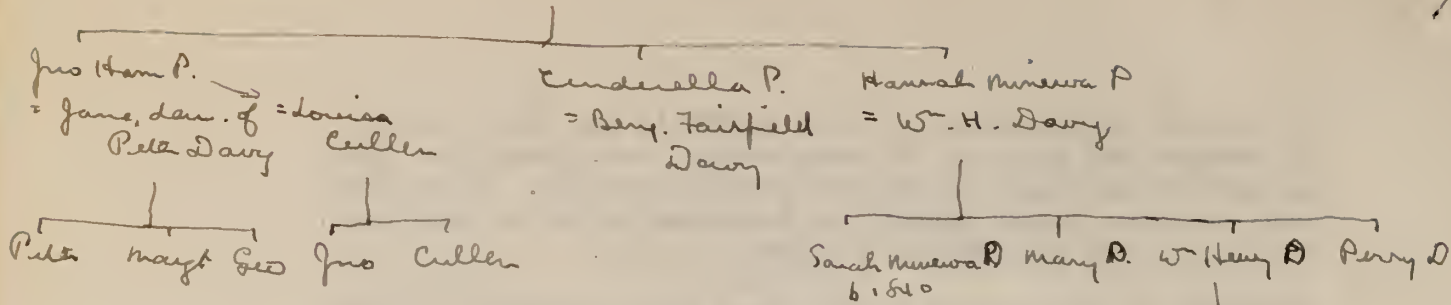 Jno Ham P.
= Jane, dau. of = Louisa
Peter Davy Cullen
Cinderella P.
= Benj. Fairfield
Davy
Hannah Minerva P
= Wm. H. Davy
Peter Margt Geo Jno Cullen
Sarah Minerva D Mary D. Wm Henry D Perry D
b. 1840